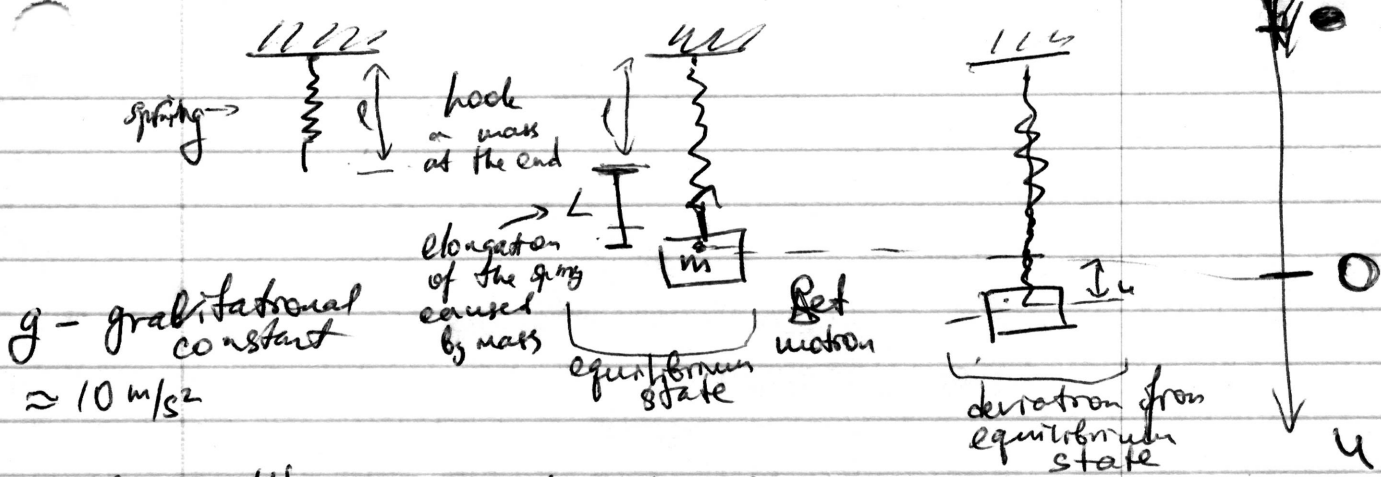 spring →
l
hook
a mass
at the end
l
L
elongation
of the spring
caused
by mass
m
equilibrium
state
set
motion
u
deviation from
equilibrium
state
0
u
g - gravitational
constant
≈ 10 m/s²